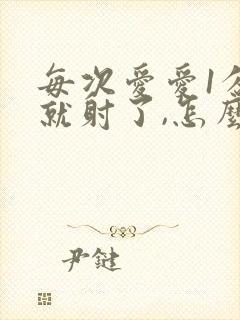 每次愛愛1分
就射了,怎麼
尹鍵